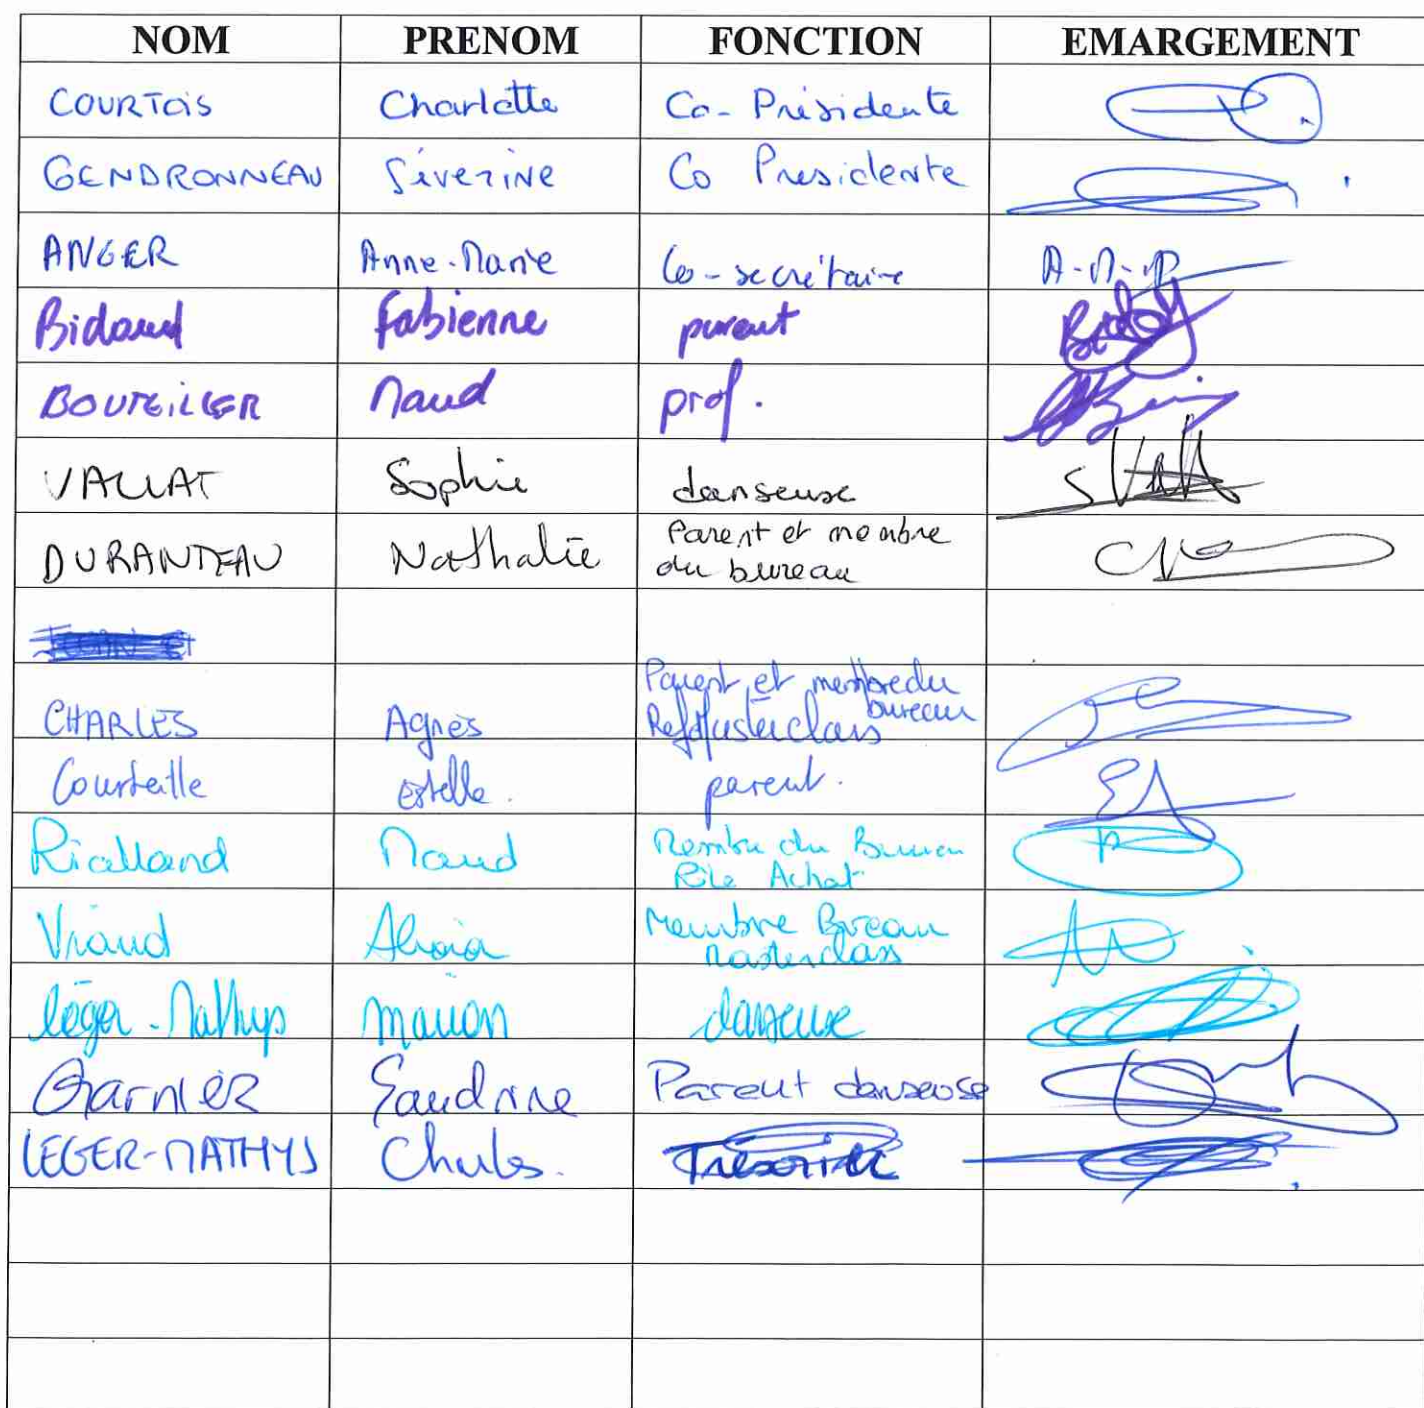 NOM PRENOM FONCTION EMARGEMENT
COURTOIS Charlotte Co-Présidente
GENDRONNEAU Séverine Co Presidente
ANGER Anne-Marie Co-secrétaire
Bidaud Fabienne parent
BOUTEILLER Maud prof.
VALLAT Sophie danseuse
DURANTEAU Nathalie Parent et membre
du bureau
CHARLES Agnès Parent et membre du
bureau
Courteille estelle. parent.
Rialland Maud Membre du Bureau
Pôle Achat
Viaud Membre Bureau
Masterclass
léger-Mathys manon danseuse
Garnier Sandrine Parent danseuse
LEGER-MATHYS Charles. Trésorier